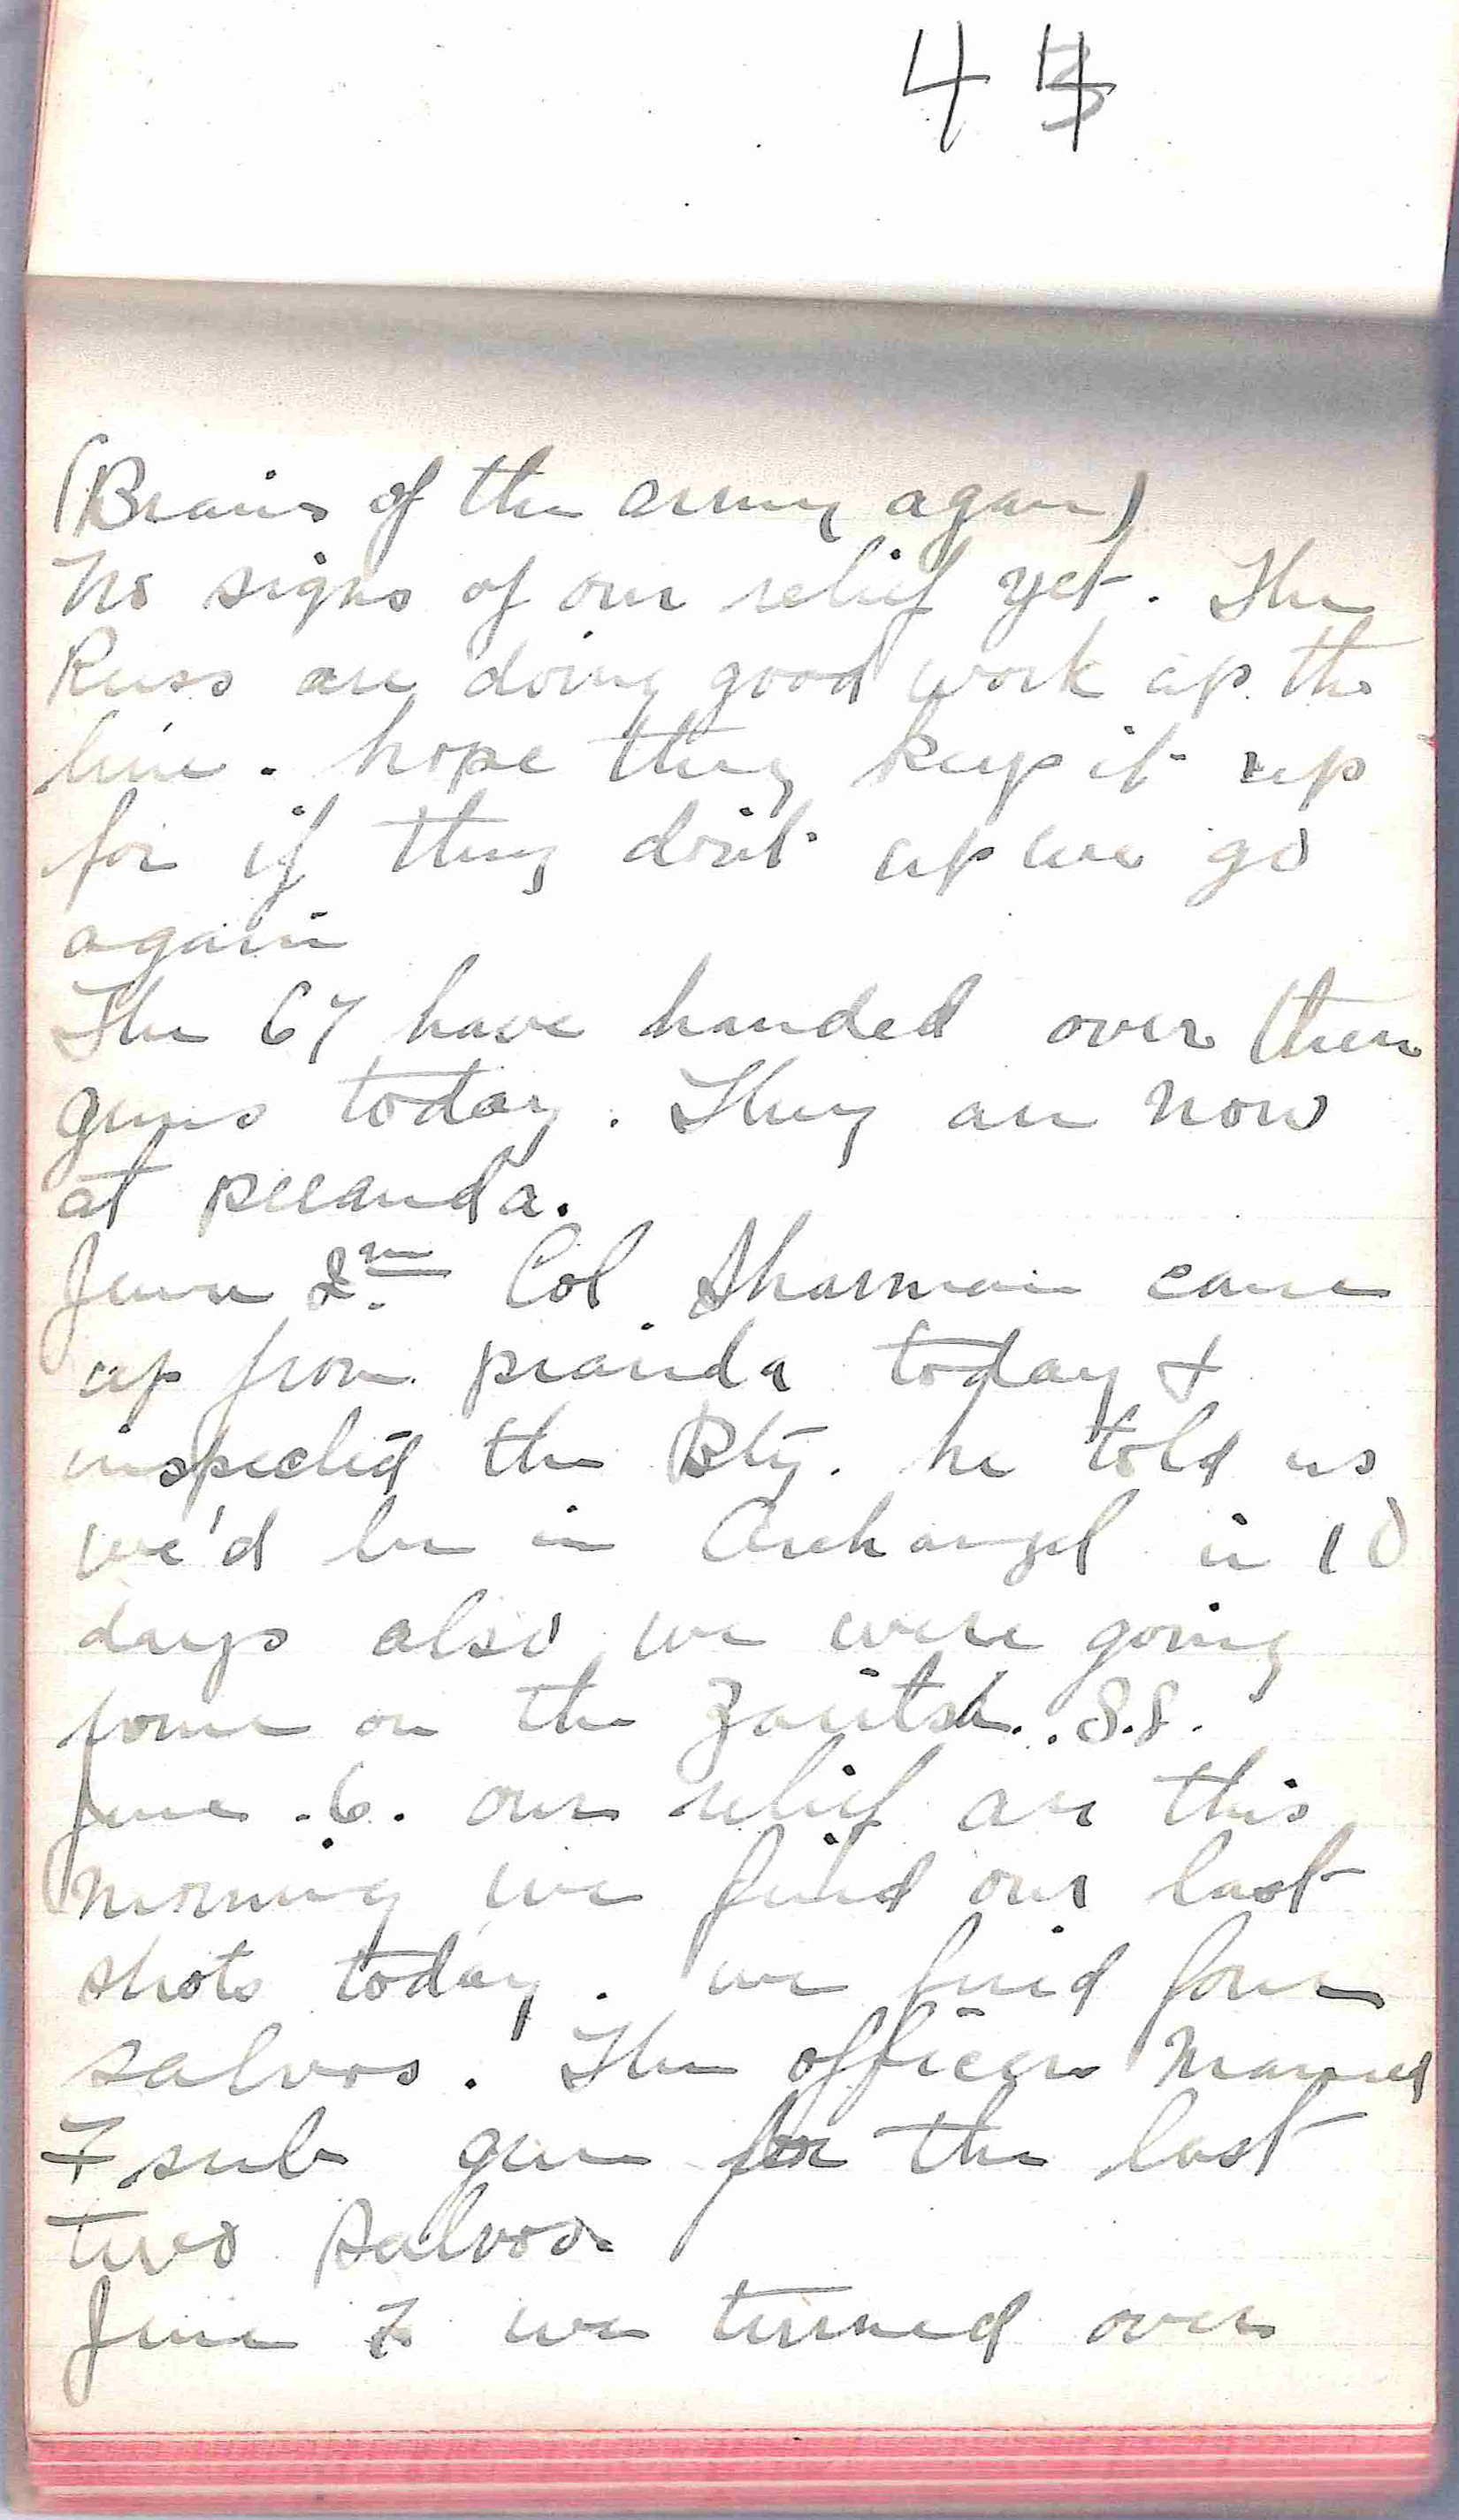 44
(Brains of the army again)
No signs of our relief yet. The
Russ are doing good work up the
line. hope they keep it up
for if they don't up we go
again
The 67 have handed over their
guns today. They are now
at peeanda.
June 2nd Col Sharman came
up from pianda today &
inspected the Bty. he told us
we'd be in Archangel in 10
days also we were going
home on the Zaritsa. S.S.
June .6. our relief are this
morning we fired our last
shots today. we fired four
salvos. The officers manned
F sub gun for the last
two salvos.
June 7 we turned over